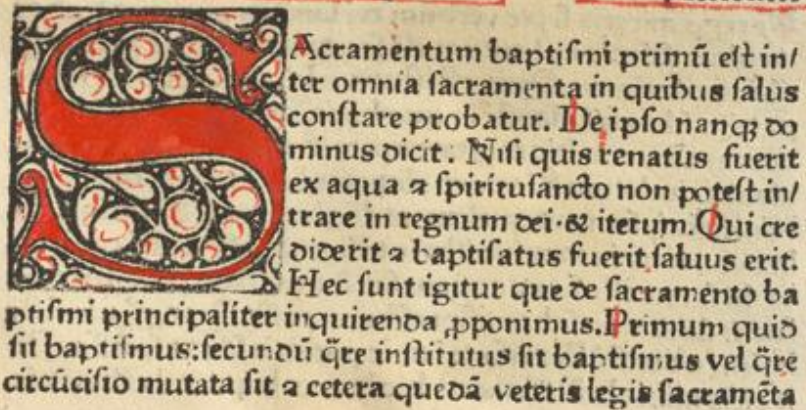 SAcramentum baptiſmi primū eſt in/
ter omnia ſacramenta in quibus ſalus
conſtare probatur. De ipſo nanqꝫ do
minus dicit: Niſi quis renatus fuerit
ex aqua ⁊ ſpirituſancto non poteſt in/
trare in regnum dei·& iterum. Qui cre
diderit ⁊ baptiſatus fuerit ſaluus erit.
Hec ſunt igitur que de ſacramento ba
ptiſmi principaliter inquirenda ꝓponimus. Primum quid
ſit baptiſmus: ſecundū q̄re inſtitutus ſit baptiſmus vel q̄re
circūciſio mutata ſit ⁊ cetera quedā veteris legis ſacramēta